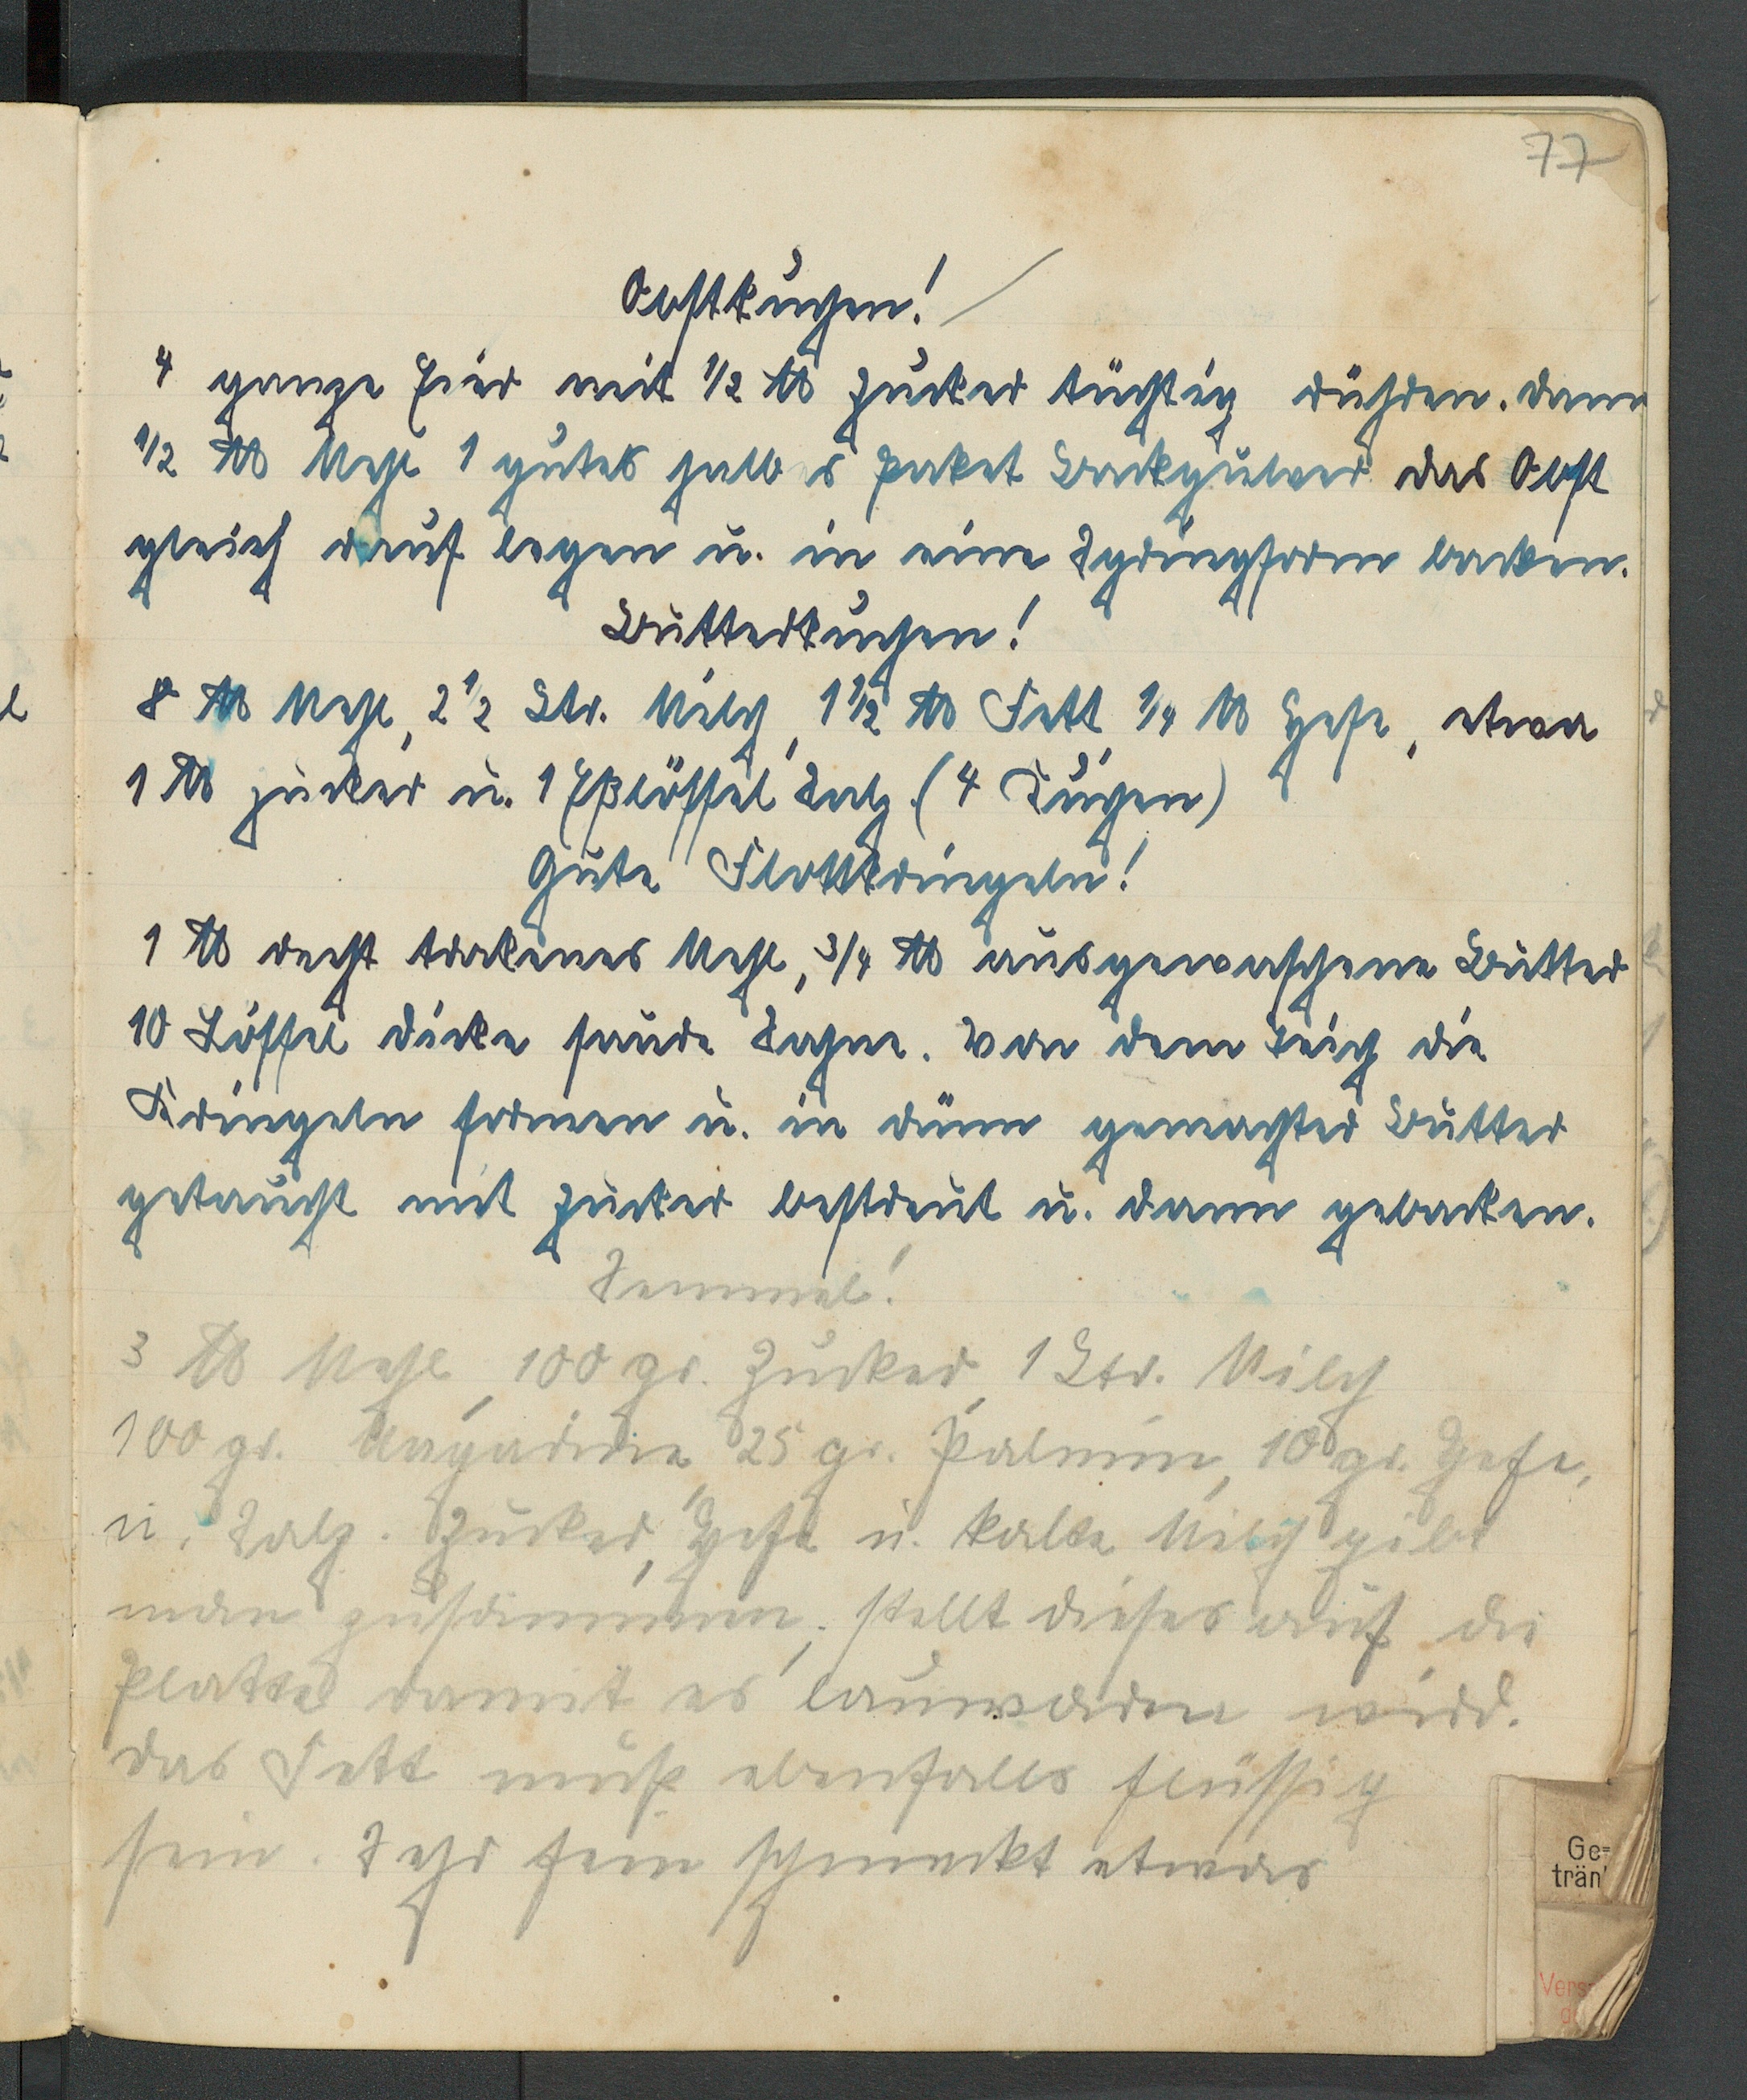 77
Obstkuchen!
4 ganze Eier mit 1/2 ℔ Zucker tüchtig rühren. dann
1/2 ℔ Mehl 1 gutes halbes Paket Backpulver das Obst
gleich drauf legen u. in eine Springform backen.
Butterkuchen!
8 ℔ Mehl, 2 1/2 Ltr. Milch, 1 1/2 ℔ Fett 1/4 ℔ Hefe, etwa
1 ℔ Zucker u. 1 Eßlöffel Salz. (4 Kuchen)
Gute Flottkringeln!
1 ℔ recht trokenes Mehl, 3/4 ℔ ausgewaschene Butter
10 Löffel dicke saure Sahne. Von dem Teig die
Kringeln formen u. in dünn gemachter Butter
getaucht mit Zucker bestreut u. dann gebacken.
Semmel!
3 ℔ Mehl, 100 gr. Zucker, 1 Ltr. Milch
100 gr. Magarine, 25 gr. Palmin, 10 gr. Hefe,
u. Salz. Zucker, Hefe u. kalte Milch gibt
man zusammen, stellt dieses auf die
Platte damit es lauwarm wird.
das Fett muß ebenfalls flüssig
sein. Sehr fein schmeckt etwas
Ge=
trän
Vers